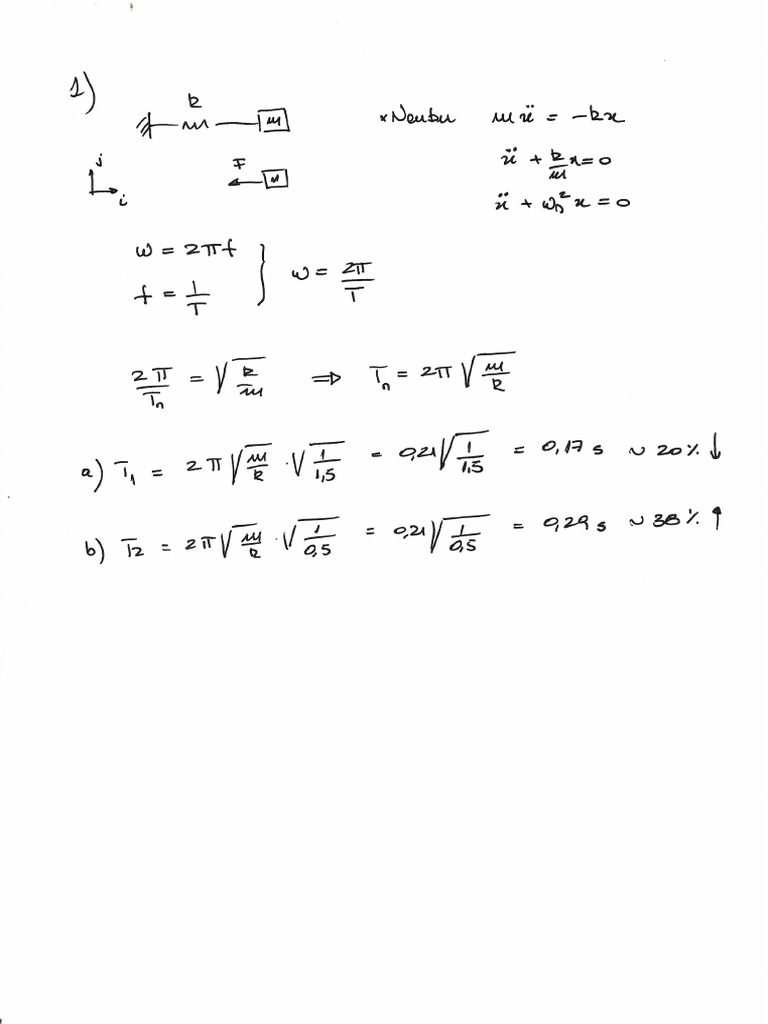 1)
k
m
*Newton mẍ = -kx
j
i
F
m
ẍ + k/m x = 0
ẍ + ωn² x = 0
ω = 2πf
f = 1/T
ω = 2π/T
2π/Tn = √(k/m) ⇒ Tn = 2π √(m/k)
a) T1 = 2π√(m/k) · √(1/1,5) = 0,21√(1/1,5) = 0,17 s ~ 20% ↓
b) T2 = 2π√(m/k) · √(1/0,5) = 0,21√(1/0,5) = 0,29 s ~ 38% ↑